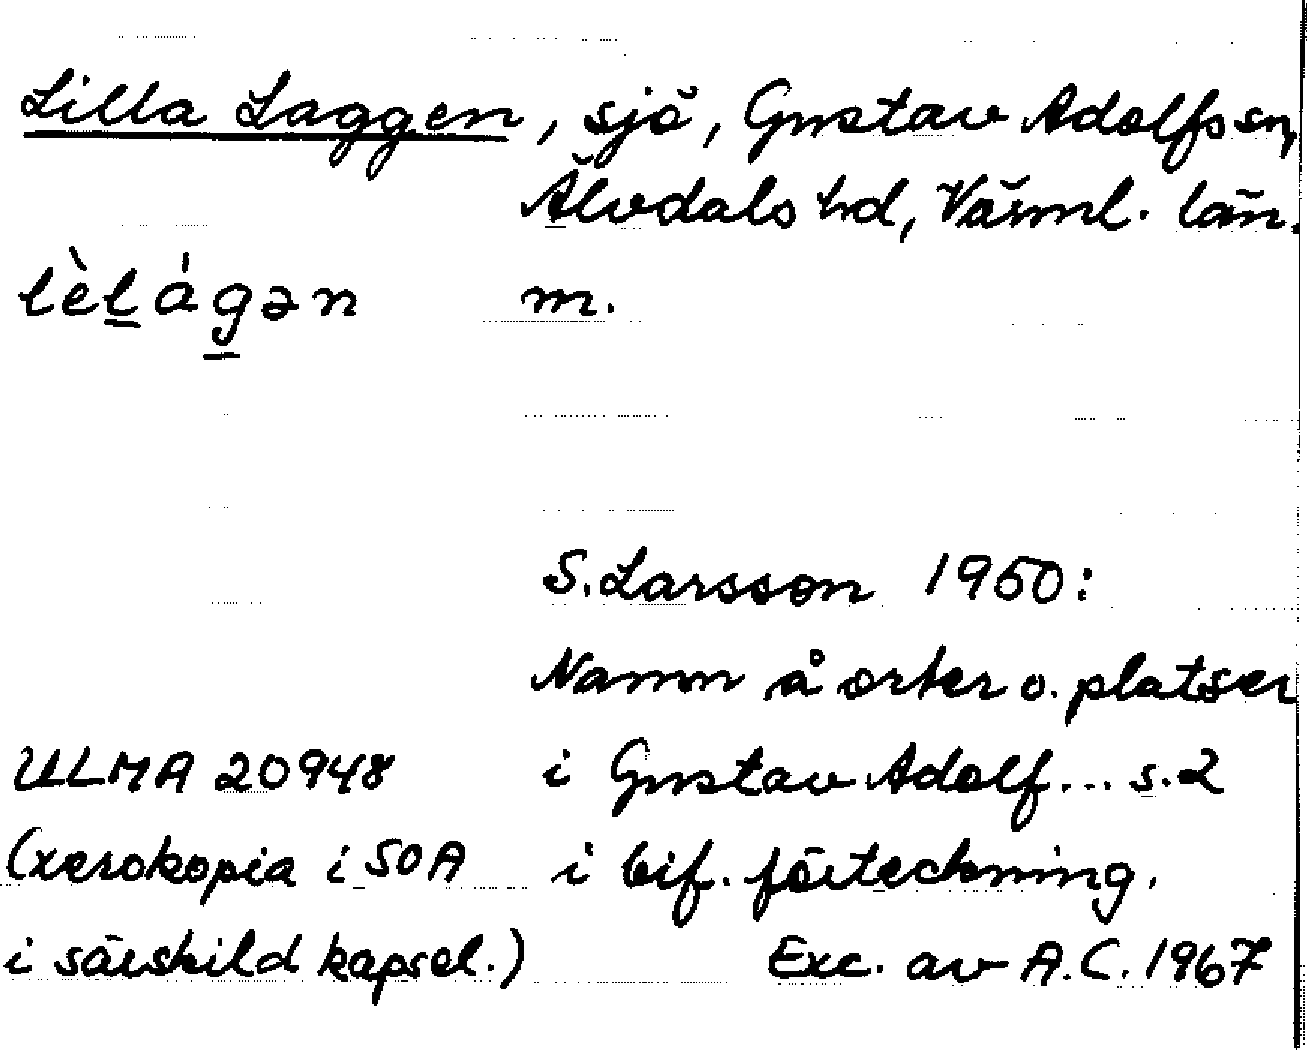 Lilla Laggen, sjö, Gustav Adolfs sn,
Älvdals hd, Värml. län.
lèl̲ág̲ən m.
S. Larsson 1950:
Namn å orter o. platser
ULMA 20948 i Gustav Adolf... s. 2
(xerokopia i SOA i bif. förteckning.
i särskild kapsel.) Exc. av A.C. 1967